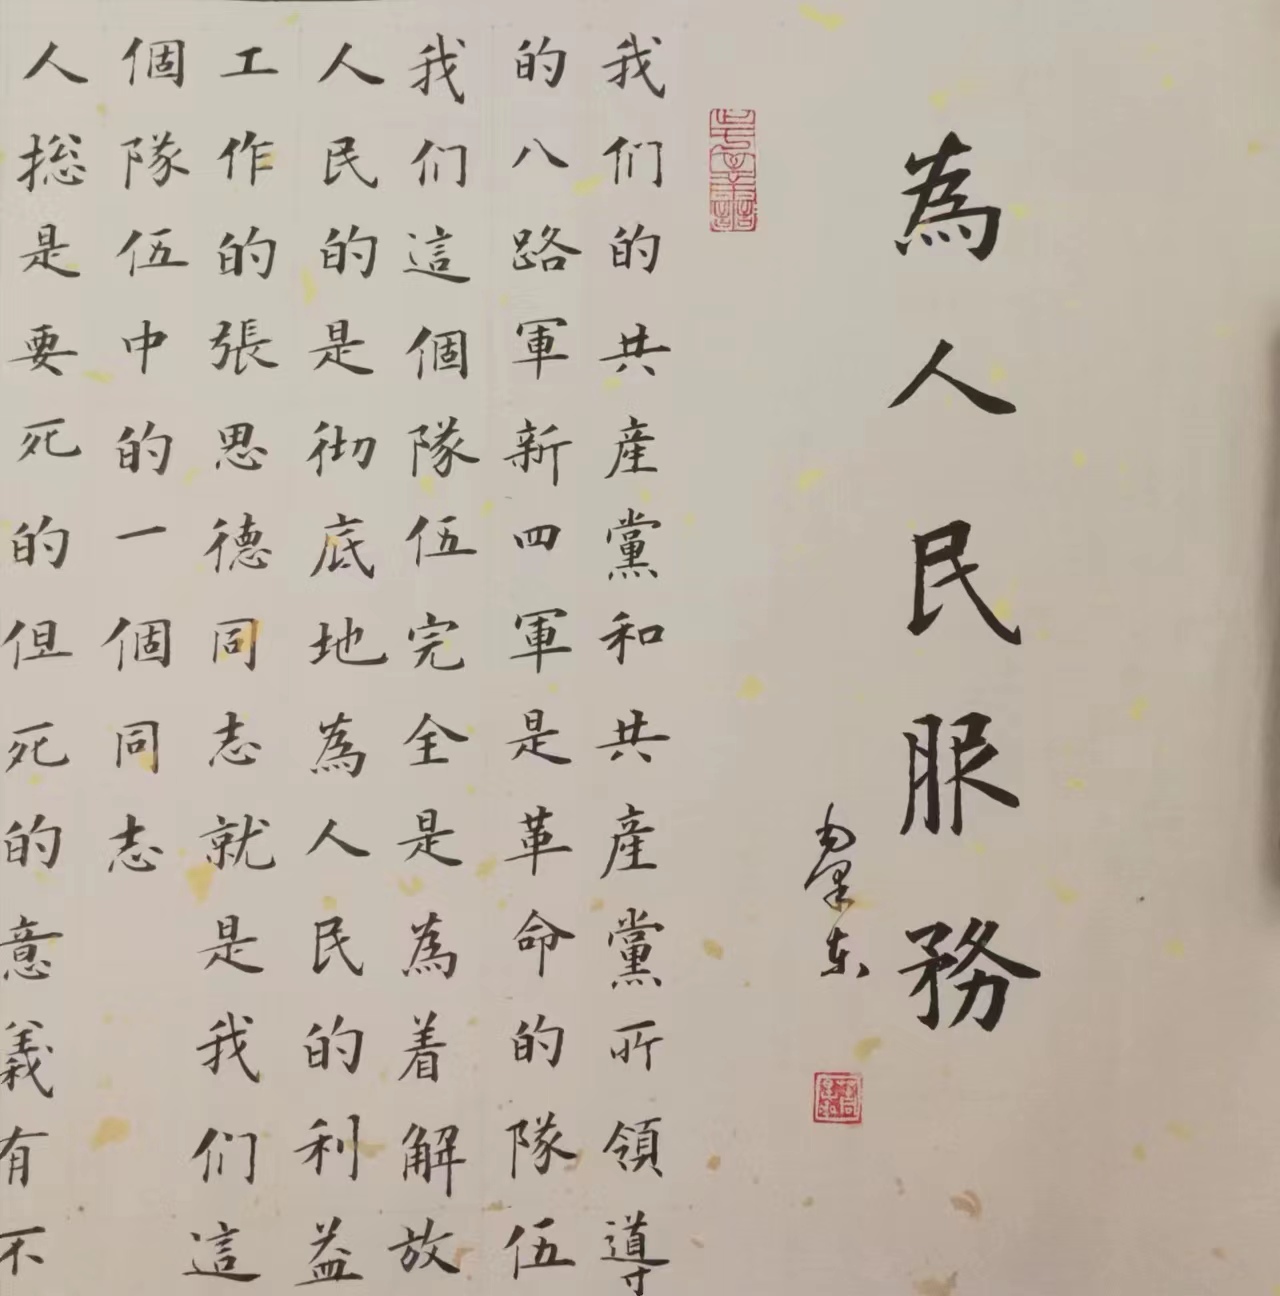 為人民服務
我们的共産黨和共産黨所領導
的八路軍新四軍是革命的隊伍
我们這個隊伍完全是為着解放
人民的是彻底地為人民的利益
工作的張思德同志就是我们這
個隊伍中的一個同志
人捴是要死的但死的意義有不